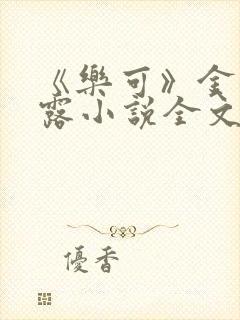 《樂可》金
露小説全文
優香